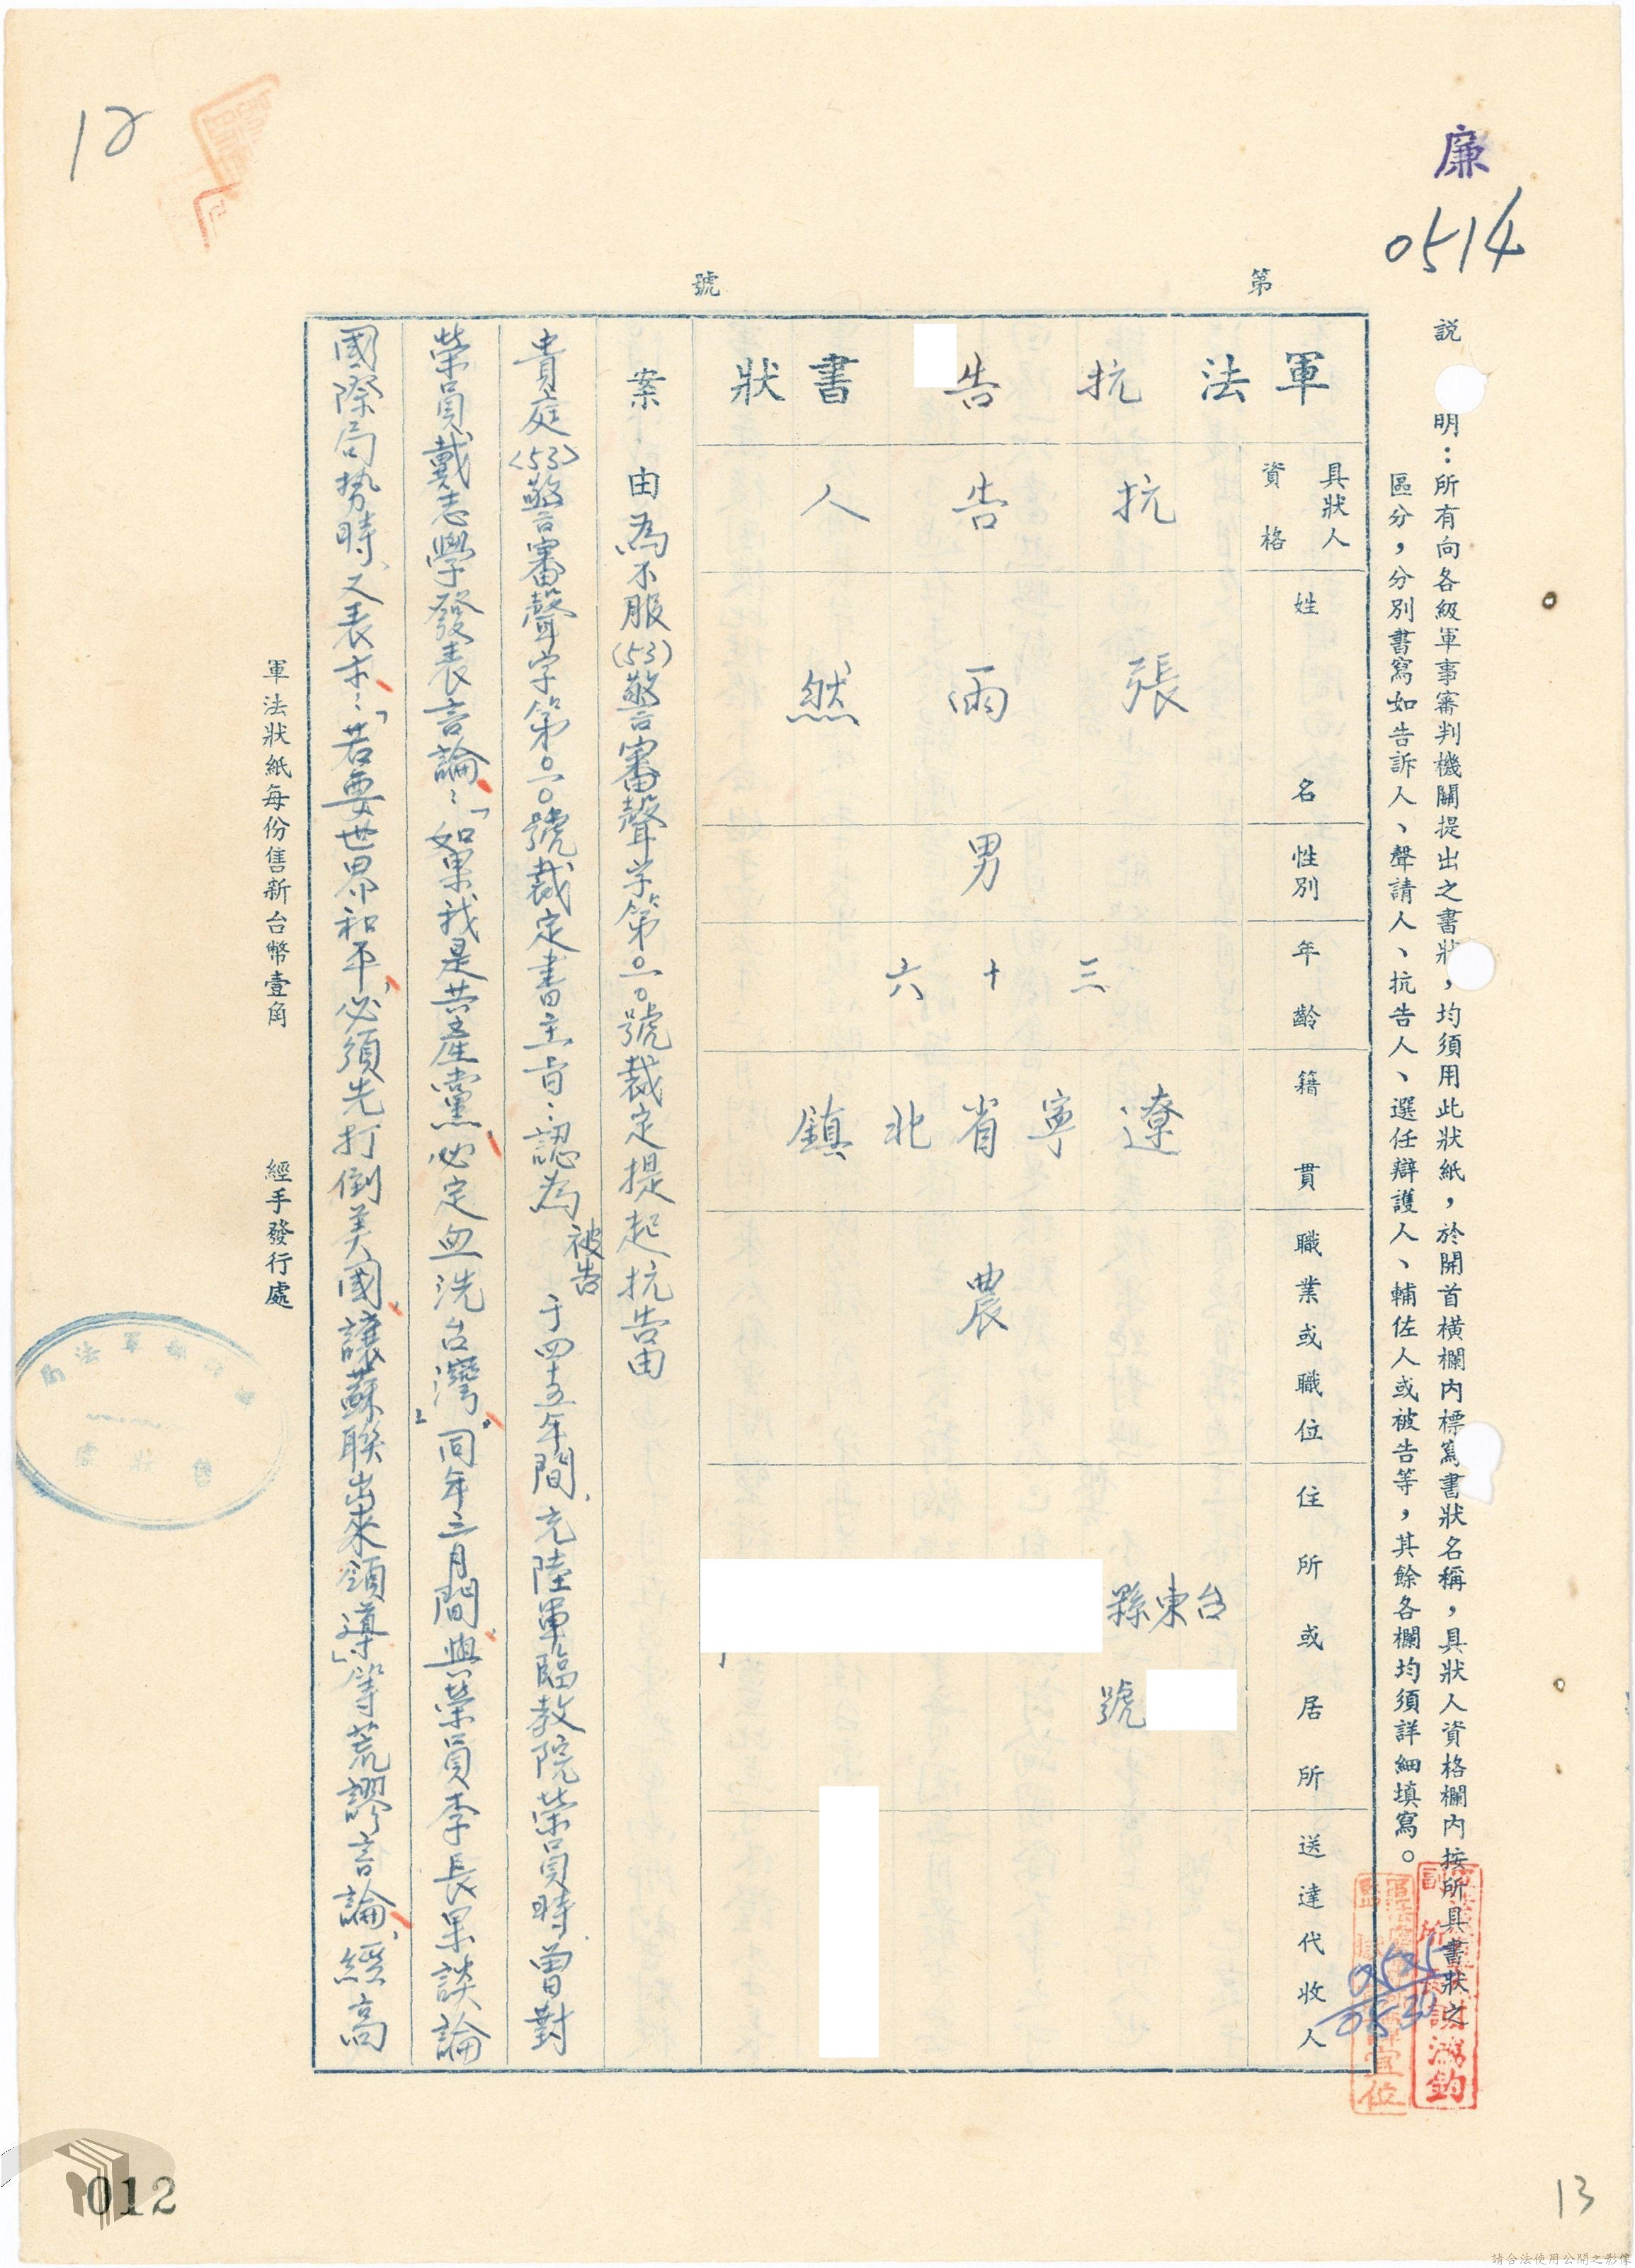 12
廉
0514
說明：所有向各級軍事審判機關提出之書狀，均須用此狀紙，於開首橫欄內標寫書狀名稱，具狀人資格欄內按所具書狀之
區分，分別書寫如告訴人、聲請人、抗告人、選任辯護人、輔佐人或被告等，其餘各欄均須詳細填寫。
第 號
軍法抗告書狀
具狀人資格
抗告人
姓名
張雨然
性別
男
年齡
三十六
籍貫
遼寧省北鎮
職業或職位
農
住所或居所
台東縣
號
送達代收人
案由為不服(53)警審聲字第〇一〇號裁定提起抗告由
貴庭(53)警審聲字第〇一〇號裁定書主旨：認為被告于四十五年間、充陸軍臨教院榮員時、曾對
榮員、戴志學發表言論：「如果我是共產黨、必定血洗台灣。」同年三月間、與榮員李長果談論
國際局勢時、又表示：「若要世界和平、必須先打倒美國、讓蘇聯出來領導」等荒謬言論、經高
軍法狀紙每份售新台幣壹角
經手發行處
謝鴻鈞
0525
012
13
請合法使用公開之影像